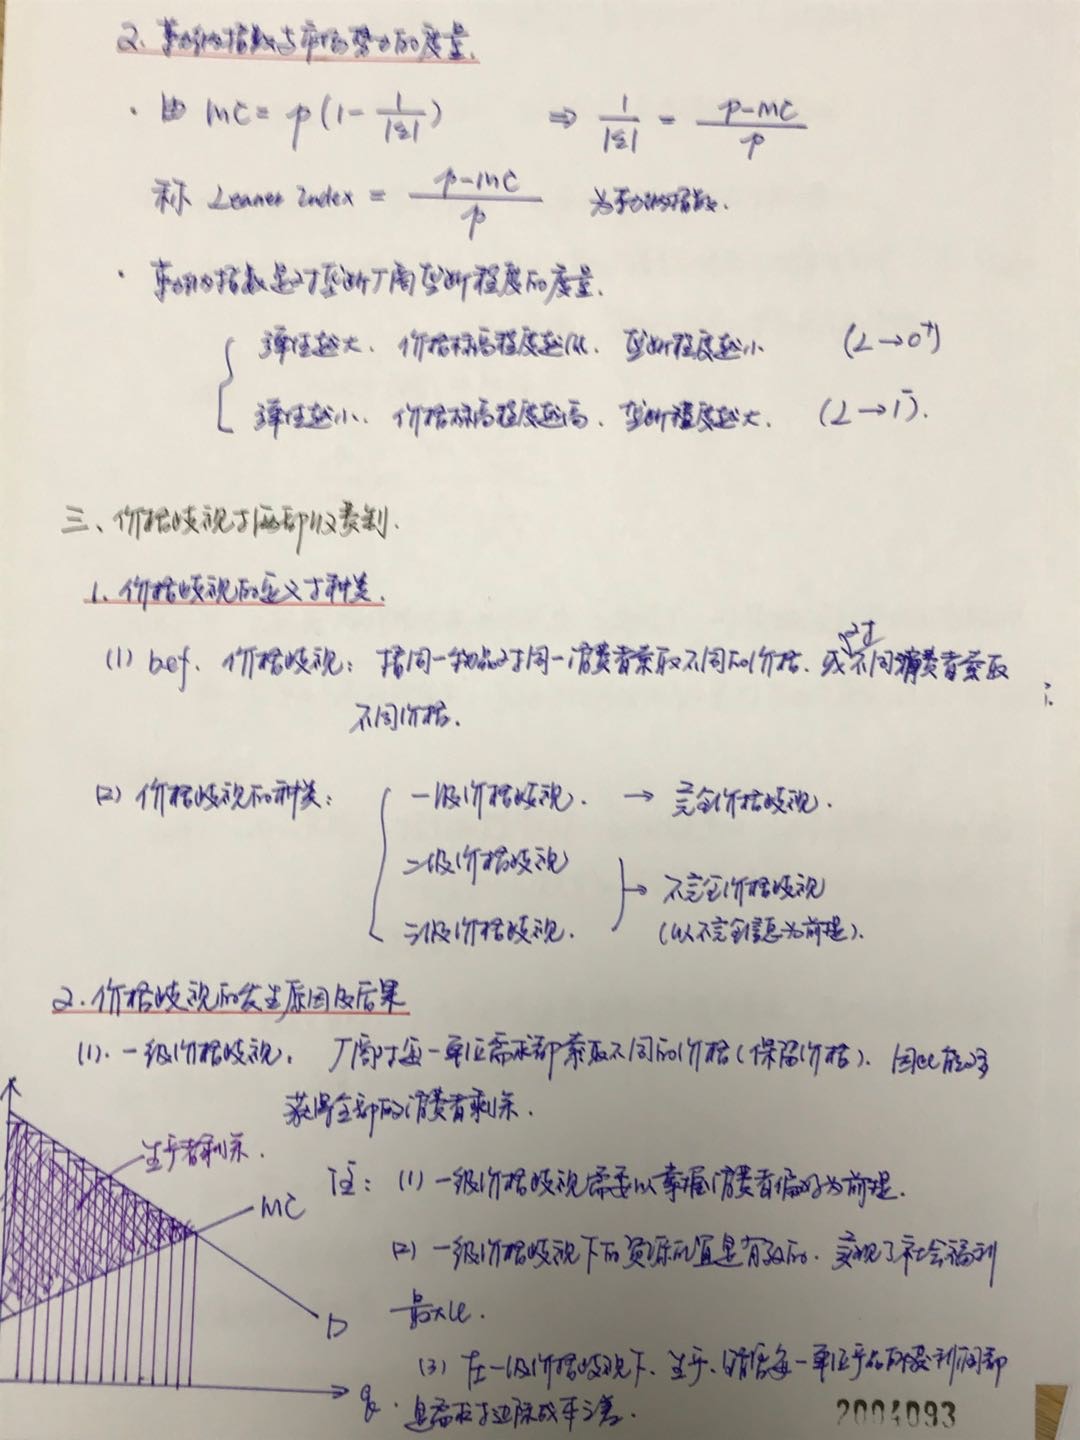 2. 勒纳指数与市场势力的度量.
· 由 MC = p(1 - 1/|ε|) ⇒ 1/|ε| = (p-MC)/p
称 Leaner Index = (p-MC)/p 为勒纳指数.
· 勒纳指数是对垄断厂商垄断程度的度量.
弹性越大、价格标高程度越低、垄断程度越小 (L→0⁺)
弹性越小、价格标高程度越高、垄断程度越大. (L→1⁻).
三、价格歧视与两部收费制.
1. 价格歧视的定义与种类.
(1) Def. 价格歧视: 指同一物品对同一消费者索取不同的价格. 或对不同消费者索取
不同价格.
(2) 价格歧视的种类:
一级价格歧视. → 完全价格歧视.
二级价格歧视
→ 不完全价格歧视
三级价格歧视. (以不完全信息为前提).
2. 价格歧视的发生原因及后果
(1). 一级价格歧视. 厂商对每一单位需求都索取不同的价格(保留价格). 因此能够
获得全部的消费者剩余.
生产者剩余.
注: (1) 一级价格歧视需要以掌握消费者偏好为前提.
MC
(2) 一级价格歧视下的资源配置是有效的. 实现了社会福利
最大化.
D
(3) 在一级价格歧视下、生产、销售每一单位产品所获利润都
q
是需求与边际成本之差.
2004093